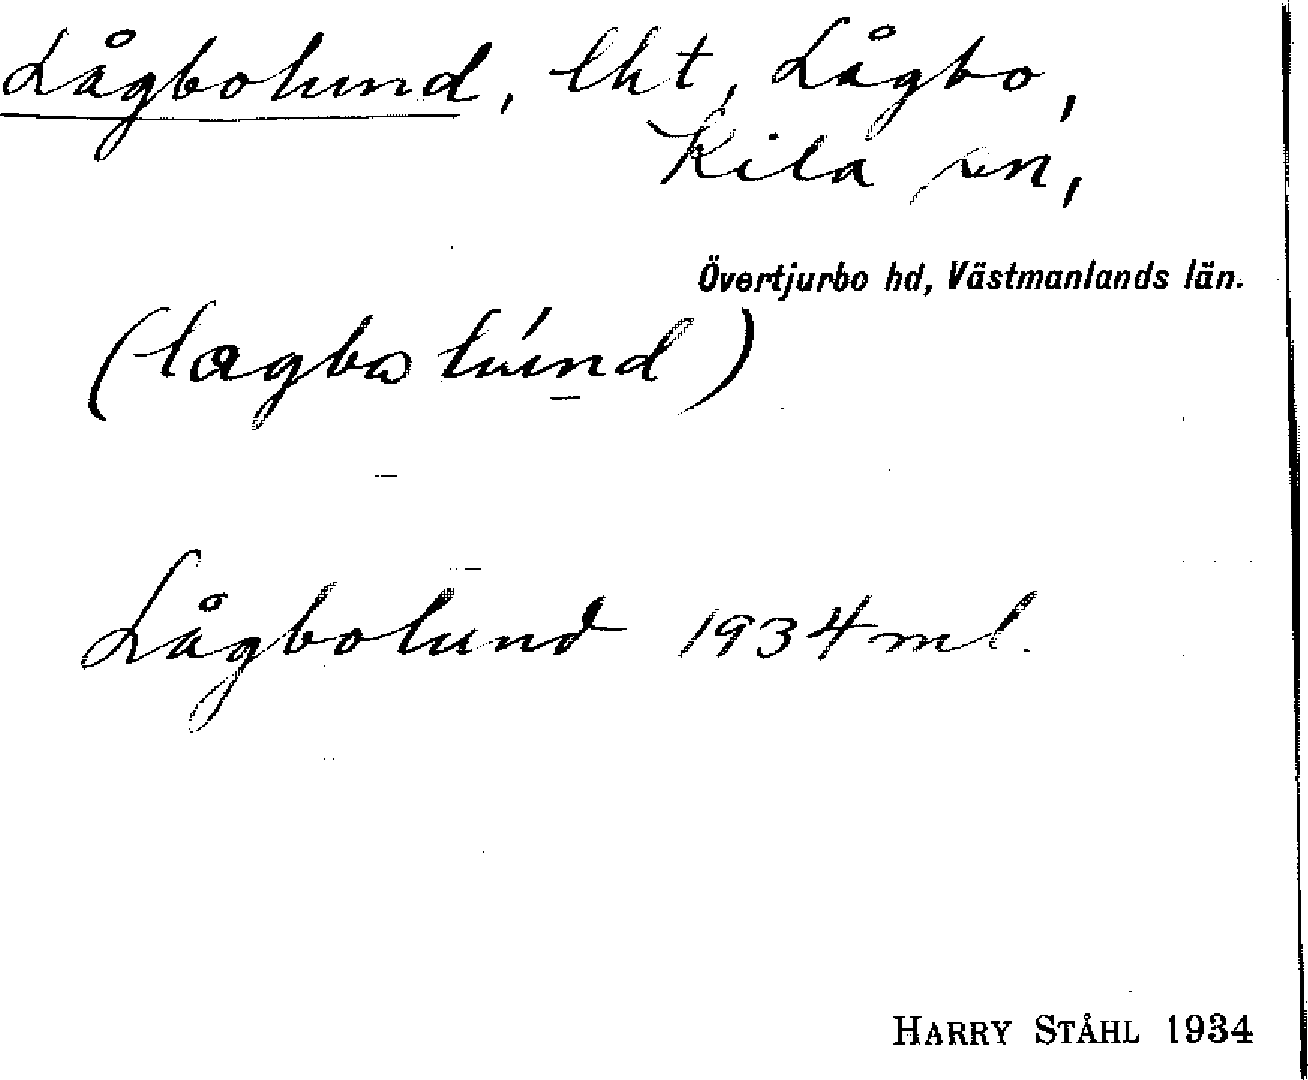 Lågbolund, lht, Lågbo,
Kila sn,
Övertjurbo hd, Västmanlands län.
(lagbωlúnd)
Lågbolund 1934 ml.
HARRY STÅHL 1934